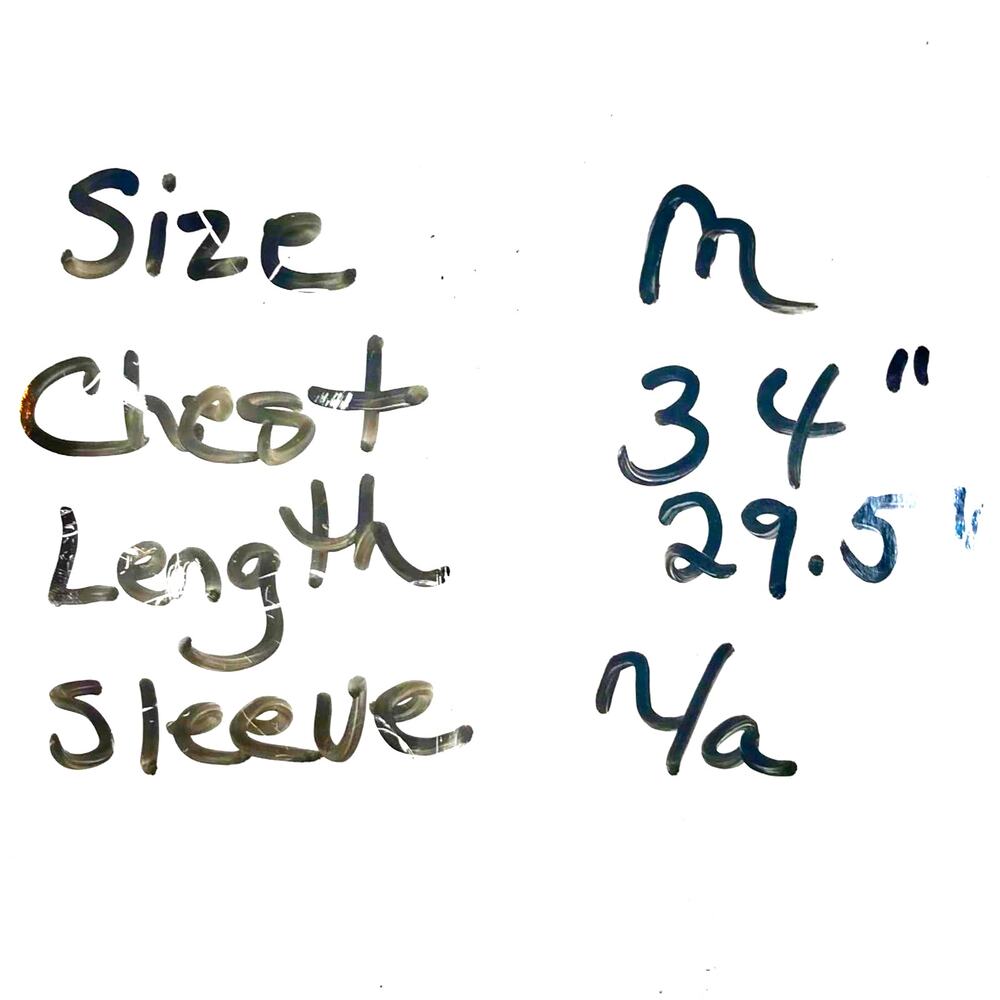 Size M
Chest 34"
Length 29.5"
Sleeve n/a